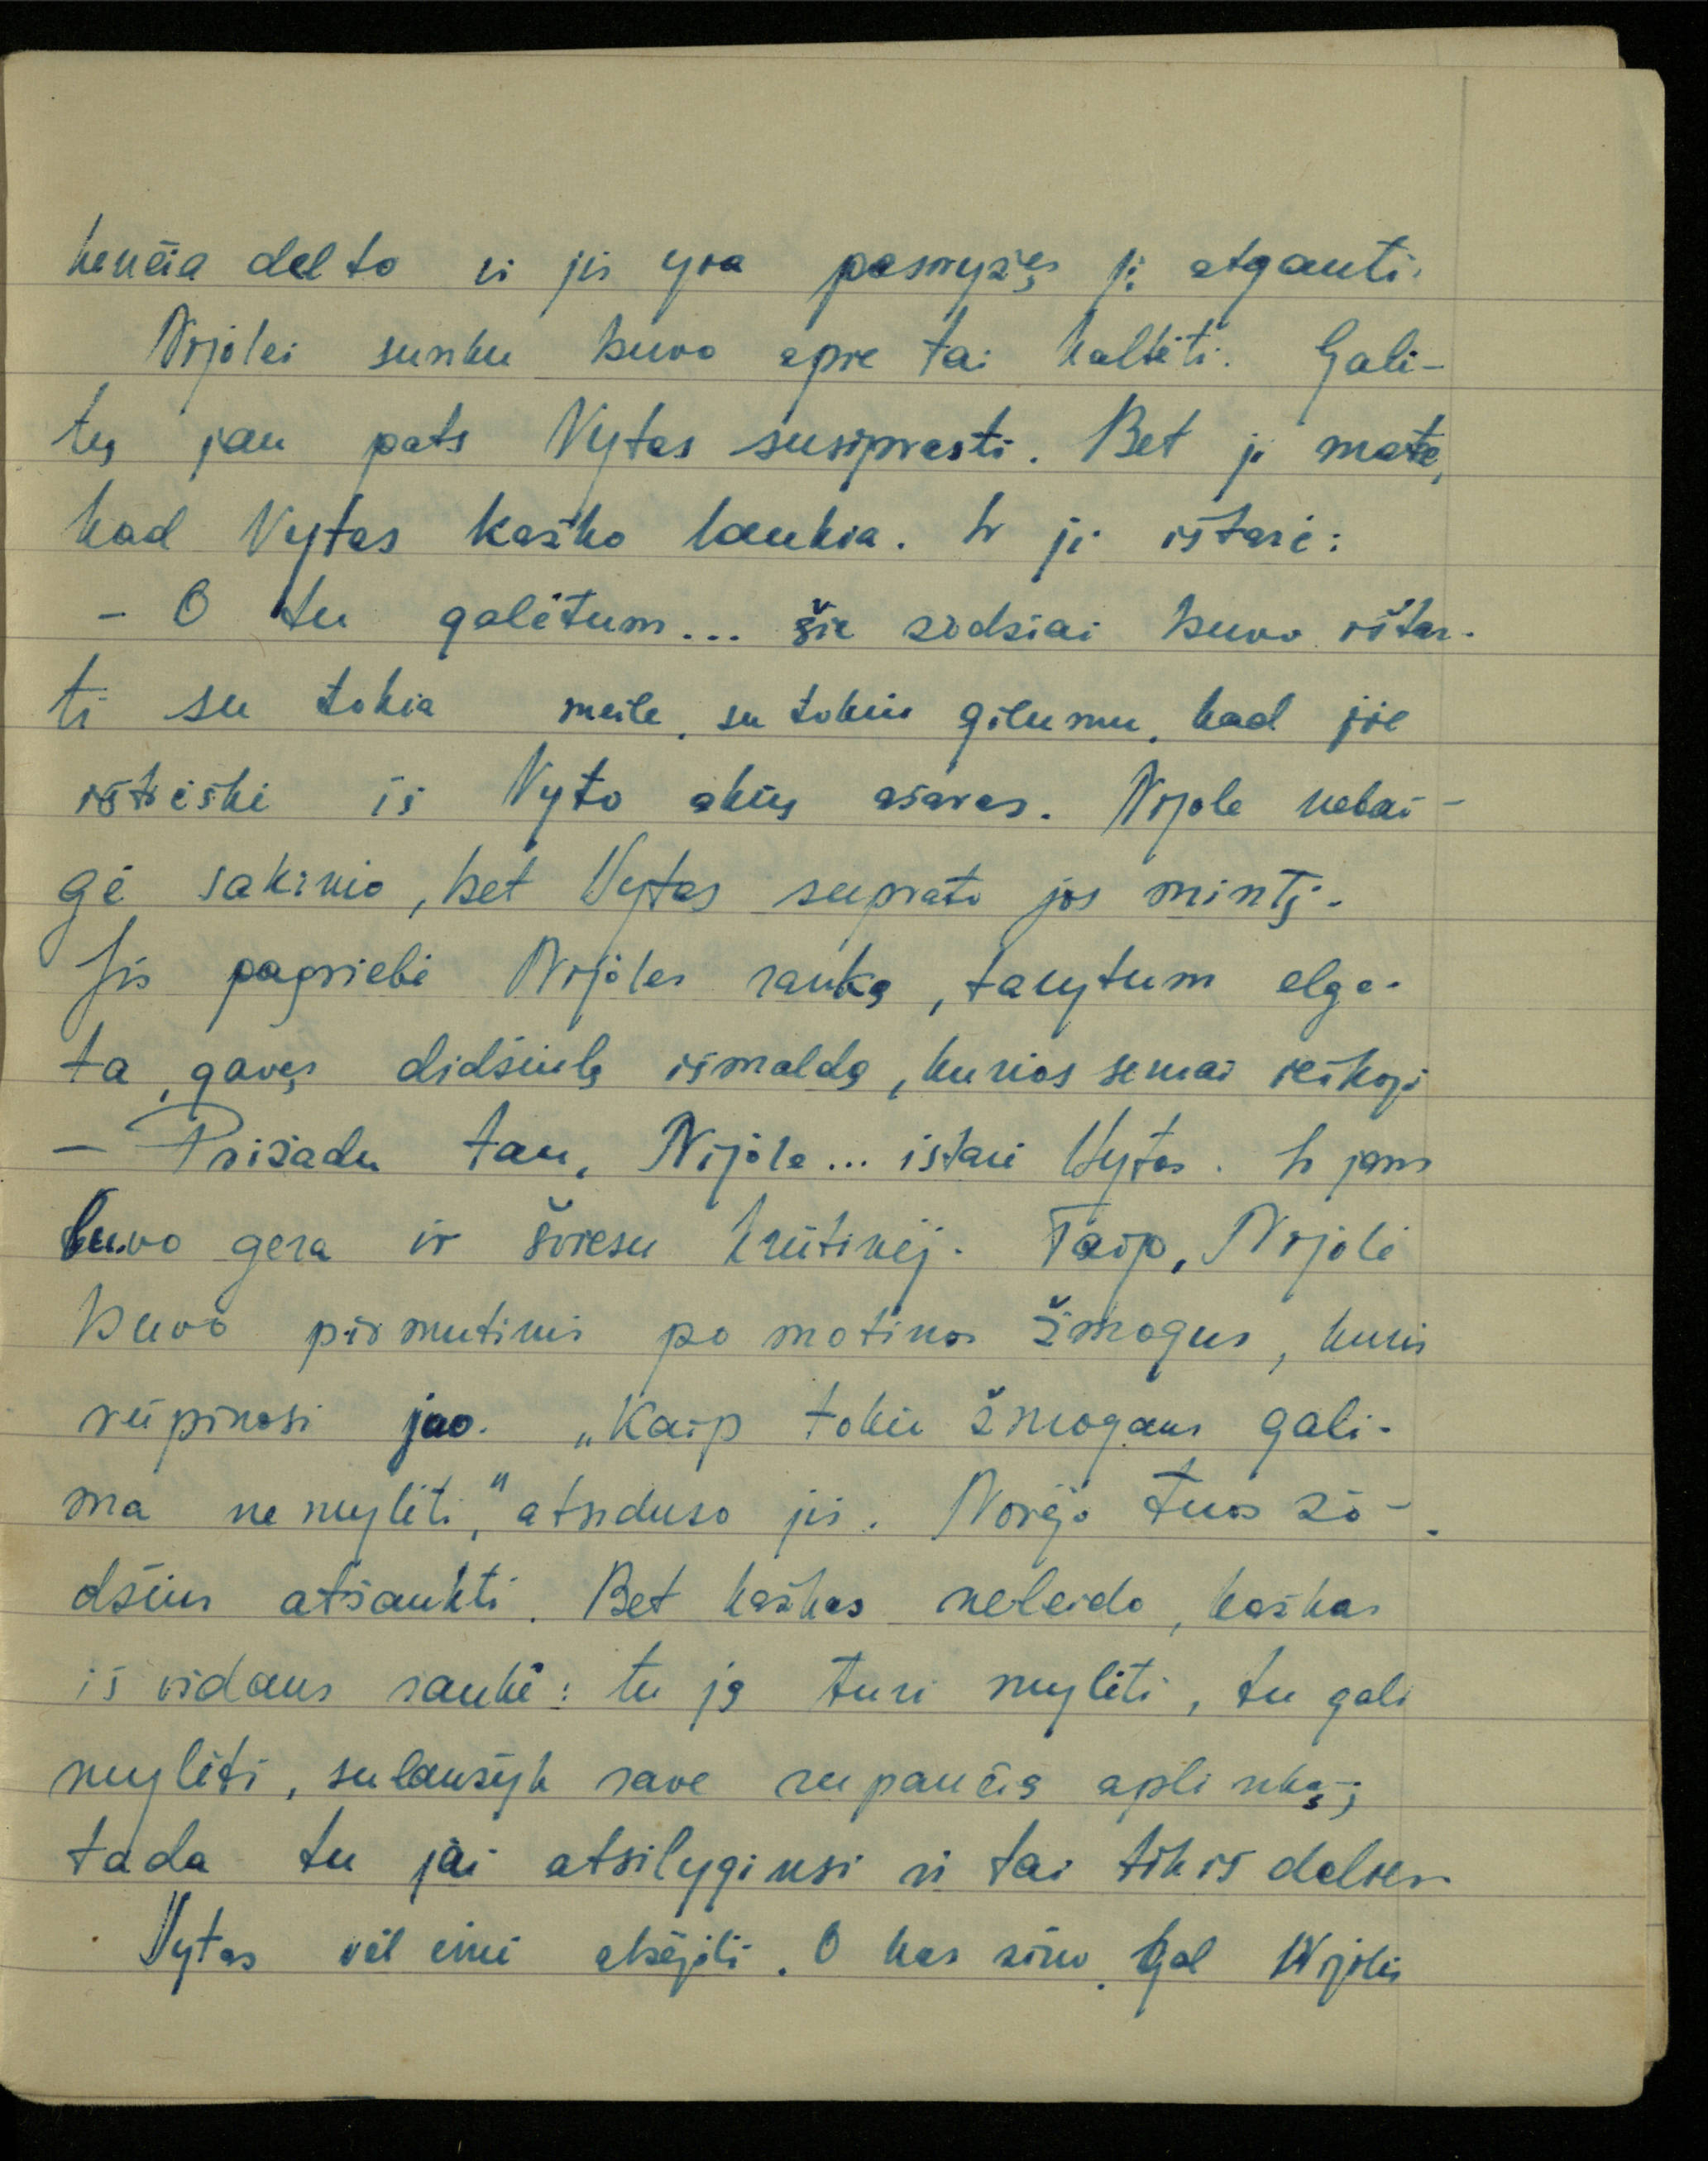 kenčia delto ir jis yra pasiryžęs jį atgauti.
Nijolei sunku buvo apie tai kalbėti. Gali-
tų jau pats Vytas susiprasti. Bet ji matė,
kad Vytas kažko laukia. Ir ji ištarė:
- O tu galėtum... šie žodžiai buvo ištar-
ti su tokia meile, su tokiu gilumu, kad jie
ištriški iš Vyto akių ašaras. Nijole nebai-
gė sakinio, bet Vytas suprato jos mintį.
Jis pagriebė Nijoles ranką, tarytum elge-
ta, gavęs didžiulę išmaldą, kurios senai ieškoji
- Prižadu tau, Nijole... ištarė Vytas. Ir jam
buvo gera ir šviesu krūtinėj. Taip, Nijolė
buvo pirmutinis po motinos žmogus, kuris
rūpinosi juo. „Kaip tokio žmogaus gali-
ma nemylėti," atsiduso jis. Norėjo tuos žo-
džius atšaukti. Bet kažkas neleido, kažkas
iš vidaus šaukė: tu ją turi mylėti, tu gali
mylėti, sulaužyk save supančią aplinką;
tada tu jai atsilyginsi ir tai tik iš dalies.
Vytas vėl ėmė abejoti. O kas žino. Gal Nijolės